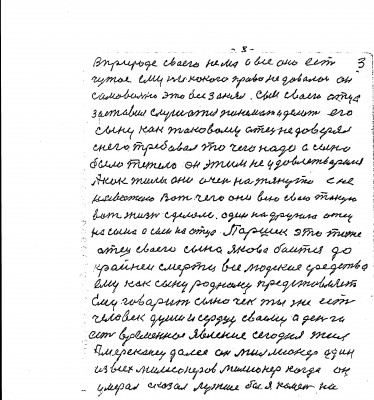 - 3 -
3
в природе своего нема а все оно есть
чужое ему никокого права недовалось он
самовольно это все занял. Сын своего отца
заставил слушатся понимать и делить его
сыну как таковому отец недоверял
снего требовал то чего надо а сыно
было тяжело он этим не удовлетворился
А как жили они очень натянуто с не
навистию Вот чего они всю свою такую
вот жизнь сделали. один на друшка отец
на сына а сын на отца Паршек это тоже
отец своего сына Якова боится до
крайней смерти все людские средства
ему как сыну родному предстовляет
Ему говорит сыночек ты же есть
человек души и сердцу своему а деньги
есть временное явление сегодня жил
Американец далее он миллионер один
из всех миллионеров миллионер когда он
умерал сказал лучше бы я комет на